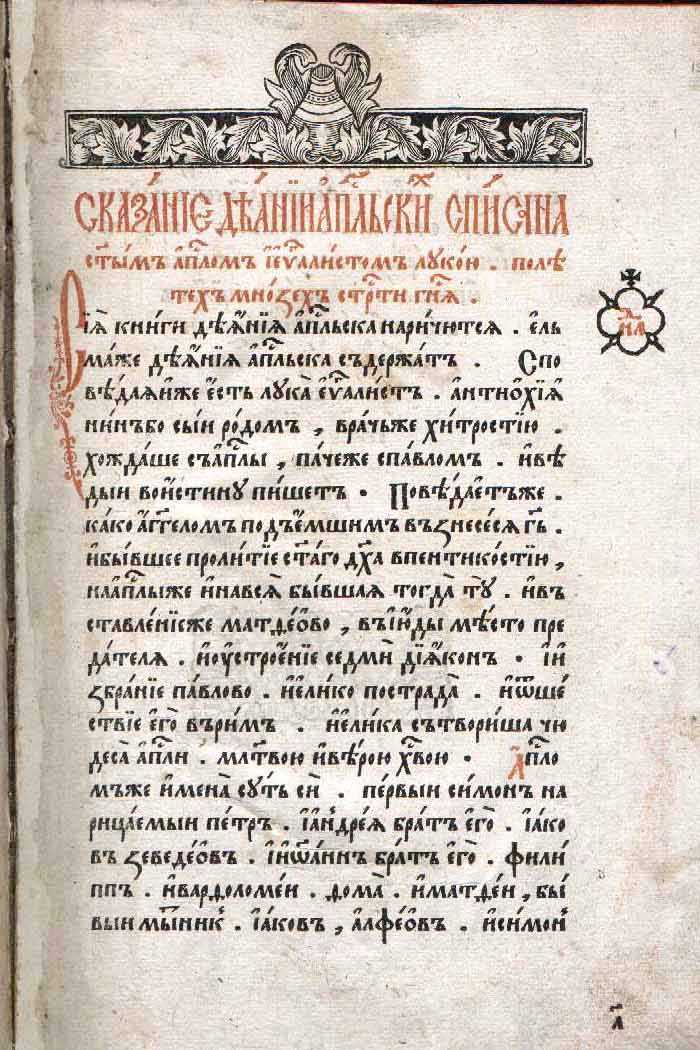 СКАЗАНІЄ ДѢАНІИ АПⷭЛЬСКИⷯ СПИСАНА
ст҃ымъ а҆пⷭломъ і҆є҆ѵⷢ҇алистомъ лꙋкою . полѣ
техъ мноꙁѣхъ стрⷭ҇ти гнⷭ҇ѧ .
Сїѧ̀ книги дѣѧ҆нїѧ а҆пⷭльска наричютсѧ . єль
маже дѣѧ҆нїѧ а҆пⷭльска съдержатъ . Спо
вѣдаѧи҆же є҆сть лꙋка̀ є҆ѵⷢ҇алистъ . антиѡ҆хїѧ
нинъбо сыи родомъ , врачьже хитростїю .
хождаше съа҆пⷭлы , пачеже спавломъ . и҆вѣ
дыи вои҆стинꙋ пишетъ . Повѣдаєтъже .
како а҆гг҃ломъ подъє҆мшимъ въꙁнесесѧ гь҃ .
и҆бывшее пролитїе ст҃аго дх҃а впентикостїю ,
наа҆пⷭлыже и҆навсѧ̀ бывшаѧ тогда̀ тꙋ̀ . и҆въ
ставленїеже матѳеово , въі҆ю҆ды мѣсто пре
дателѧ . и҆оу҆строе҆нїе седмѝ дїѧ҆конъ . и҆и
ꙁбранїе павлово . и҆є҆лико пострада̀ . и҆ѿше
ствїе є҆го̀ въримъ . и҆є҆лика сътвориша чю
деса̀ а҆пⷭли . млт҃вою и҆вѣрою хв҃ою . А҆пⷭло
мъже и҆мена̀ сꙋть сѝ . первыи симонъ на
рицаемыи петръ . і҆а҆ндреѧ братъ є҆го̀ . і҆ако
въ ꙁеведео҆въ . і҆и҆ѡа҆ннъ братъ є҆го̀ . фили
ппъ . и҆варѳоломеи . ѳома̀ . и҆матѳеи , бы
выи мытникъ . і҆аковъ , а҆лфео҆въ . и҆симонъ
а҃